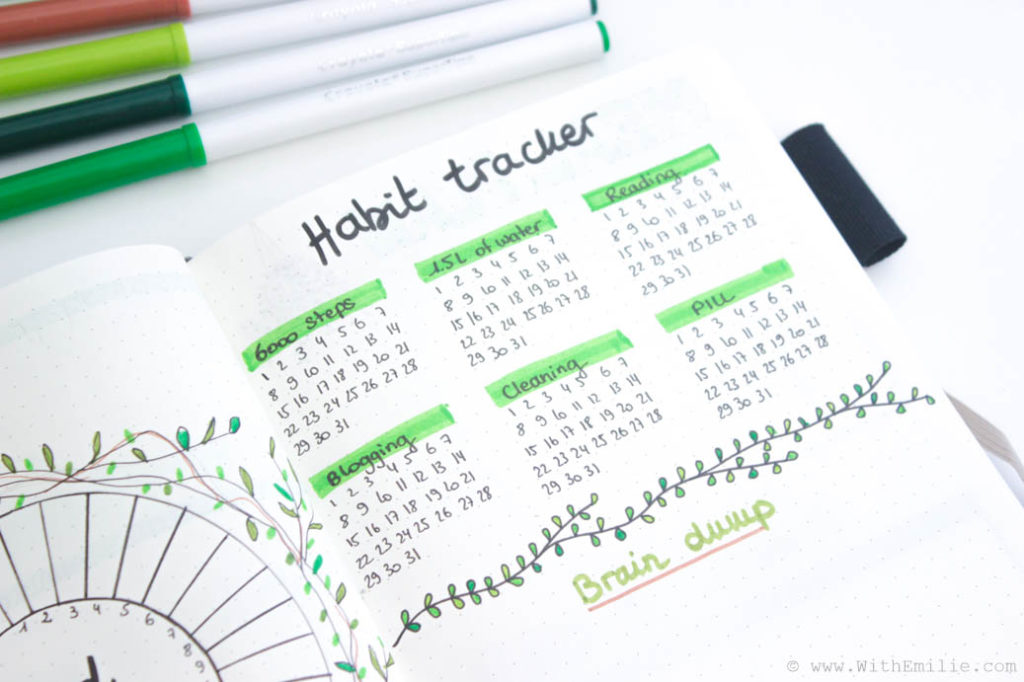 Habit tracker
6000 steps
1 2 3 4 5 6 7
8 9 10 11 12 13 14
15 16 17 18 19 20 21
22 23 24 25 26 27 28
29 30 31
1.5L of water
1 2 3 4 5 6 7
8 9 10 11 12 13 14
15 16 17 18 19 20 21
22 23 24 25 26 27 28
29 30 31
Reading
1 2 3 4 5 6 7
8 9 10 11 12 13 14
15 16 17 18 19 20 21
22 23 24 25 26 27 28
29 30 31
Blogging
1 2 3 4 5 6 7
8 9 10 11 12 13 14
15 16 17 18 19 20 21
22 23 24 25 26 27 28
29 30 31
Cleaning
1 2 3 4 5 6 7
8 9 10 11 12 13 14
15 16 17 18 19 20 21
22 23 24 25 26 27 28
29 30 31
PILL
1 2 3 4 5 6 7
8 9 10 11 12 13 14
15 16 17 18 19 20 21
22 23 24 25 26 27 28
29 30 31
Brain dump
1 2 3 4 5 6 7 8 9
© www.WithEmilie.com